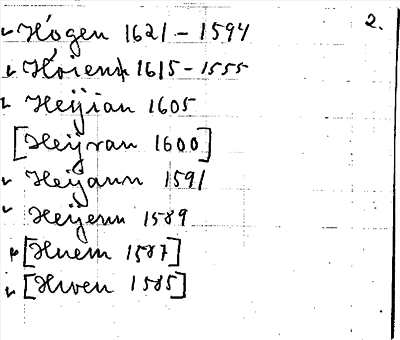 2.
Hógen 1621 – 1594
Hóienh 1615 – 1555
Heijian 1605
[Heijvan 1600]
Heijann 1591
Heijenn 1589
[Hnem 1587]
[Hwen 1585]